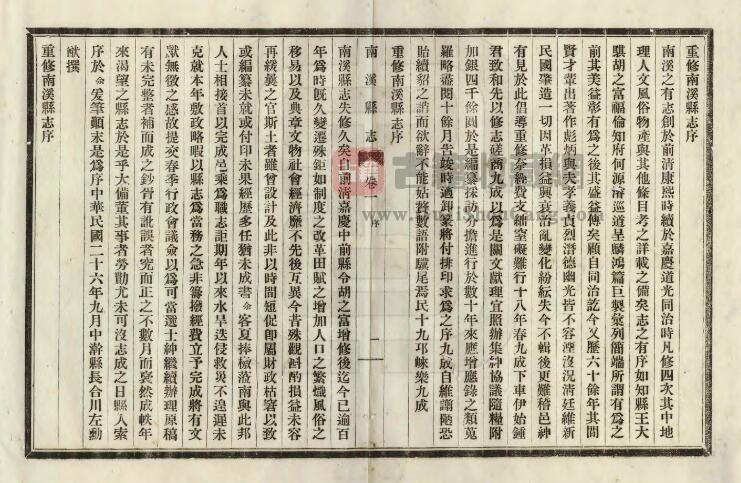 重修南溪縣志序
南溪之有志創於前清康熙時續於嘉慶道光同治時凡修四次其中地
理人文風俗物產與其他條目考之詳載之備矣志之有序如知縣王大
騏胡之富福倫知府何源濬巡道呈麟鴻篇巨製彙列簡端所謂有爲之
前其美益彰有爲之後其盛益傳矣顧自同治訖今又歷六十餘年其間
賢才輩出著作彪炳與夫孝義貞烈潛德幽光皆不容湮沒況清廷維新
民國肇造一切因革損益興衰治亂變化紛紜失今不輯後更難稽邑紳
有見於此倡導重修奈經費支絀窒礙難行十八年春九成下車伊始鍾
君致和先以修志磋商九成以爲是關文獻理宜照辦集紳協議隨糧附
加銀四千餘圓於是編纂採訪分擔進行於數十年來應增應錄之類蒐
羅略盡閱十餘月告竣時適卸篆將付排印求爲之序九成自維譾陋恐
貽續貂之誚而欲辭不能姑將數語附驥尾焉民十九邛崍樂九成
重修南溪縣志序
南溪縣志 卷一 序 一
南溪縣志失修久矣自前清嘉慶中前縣令胡之富增修後迄今已逾百
年爲時旣久變遷殊鉅如制度之改革田賦之增加人口之繁熾風俗之
移易以及典章文物社會經濟靡不先後互異今昔殊觀斟酌損益未容
再緩曩之官斯土者雖曾設計及此非以時間短促卽屬財政枯窘以致
或編纂未就或付印未果經歷多任猶未成書㑒客夏捧檄蒞南與此邦
人士相接首以完成邑乘爲職志詎期年以來水旱迭侵救災不遑遲未
克就本年敷政略暇以縣志爲當務之急非籌撥經費立予完成將有文
獻無徵之憾故提交春季行政會議僉以爲可當選士紳繼續辦理原稿
有未完整者補而成之鈔胥有訛誤者究而正之不數月而裒然成帙年
來渴望之縣志於是乎大備董其事者勞勩尤未可沒志成之日縣人索
序於㑒爰筆顚末是爲序中華民國二十六年九月中澣縣長合川左勳
猷撰
重修南溪縣志序